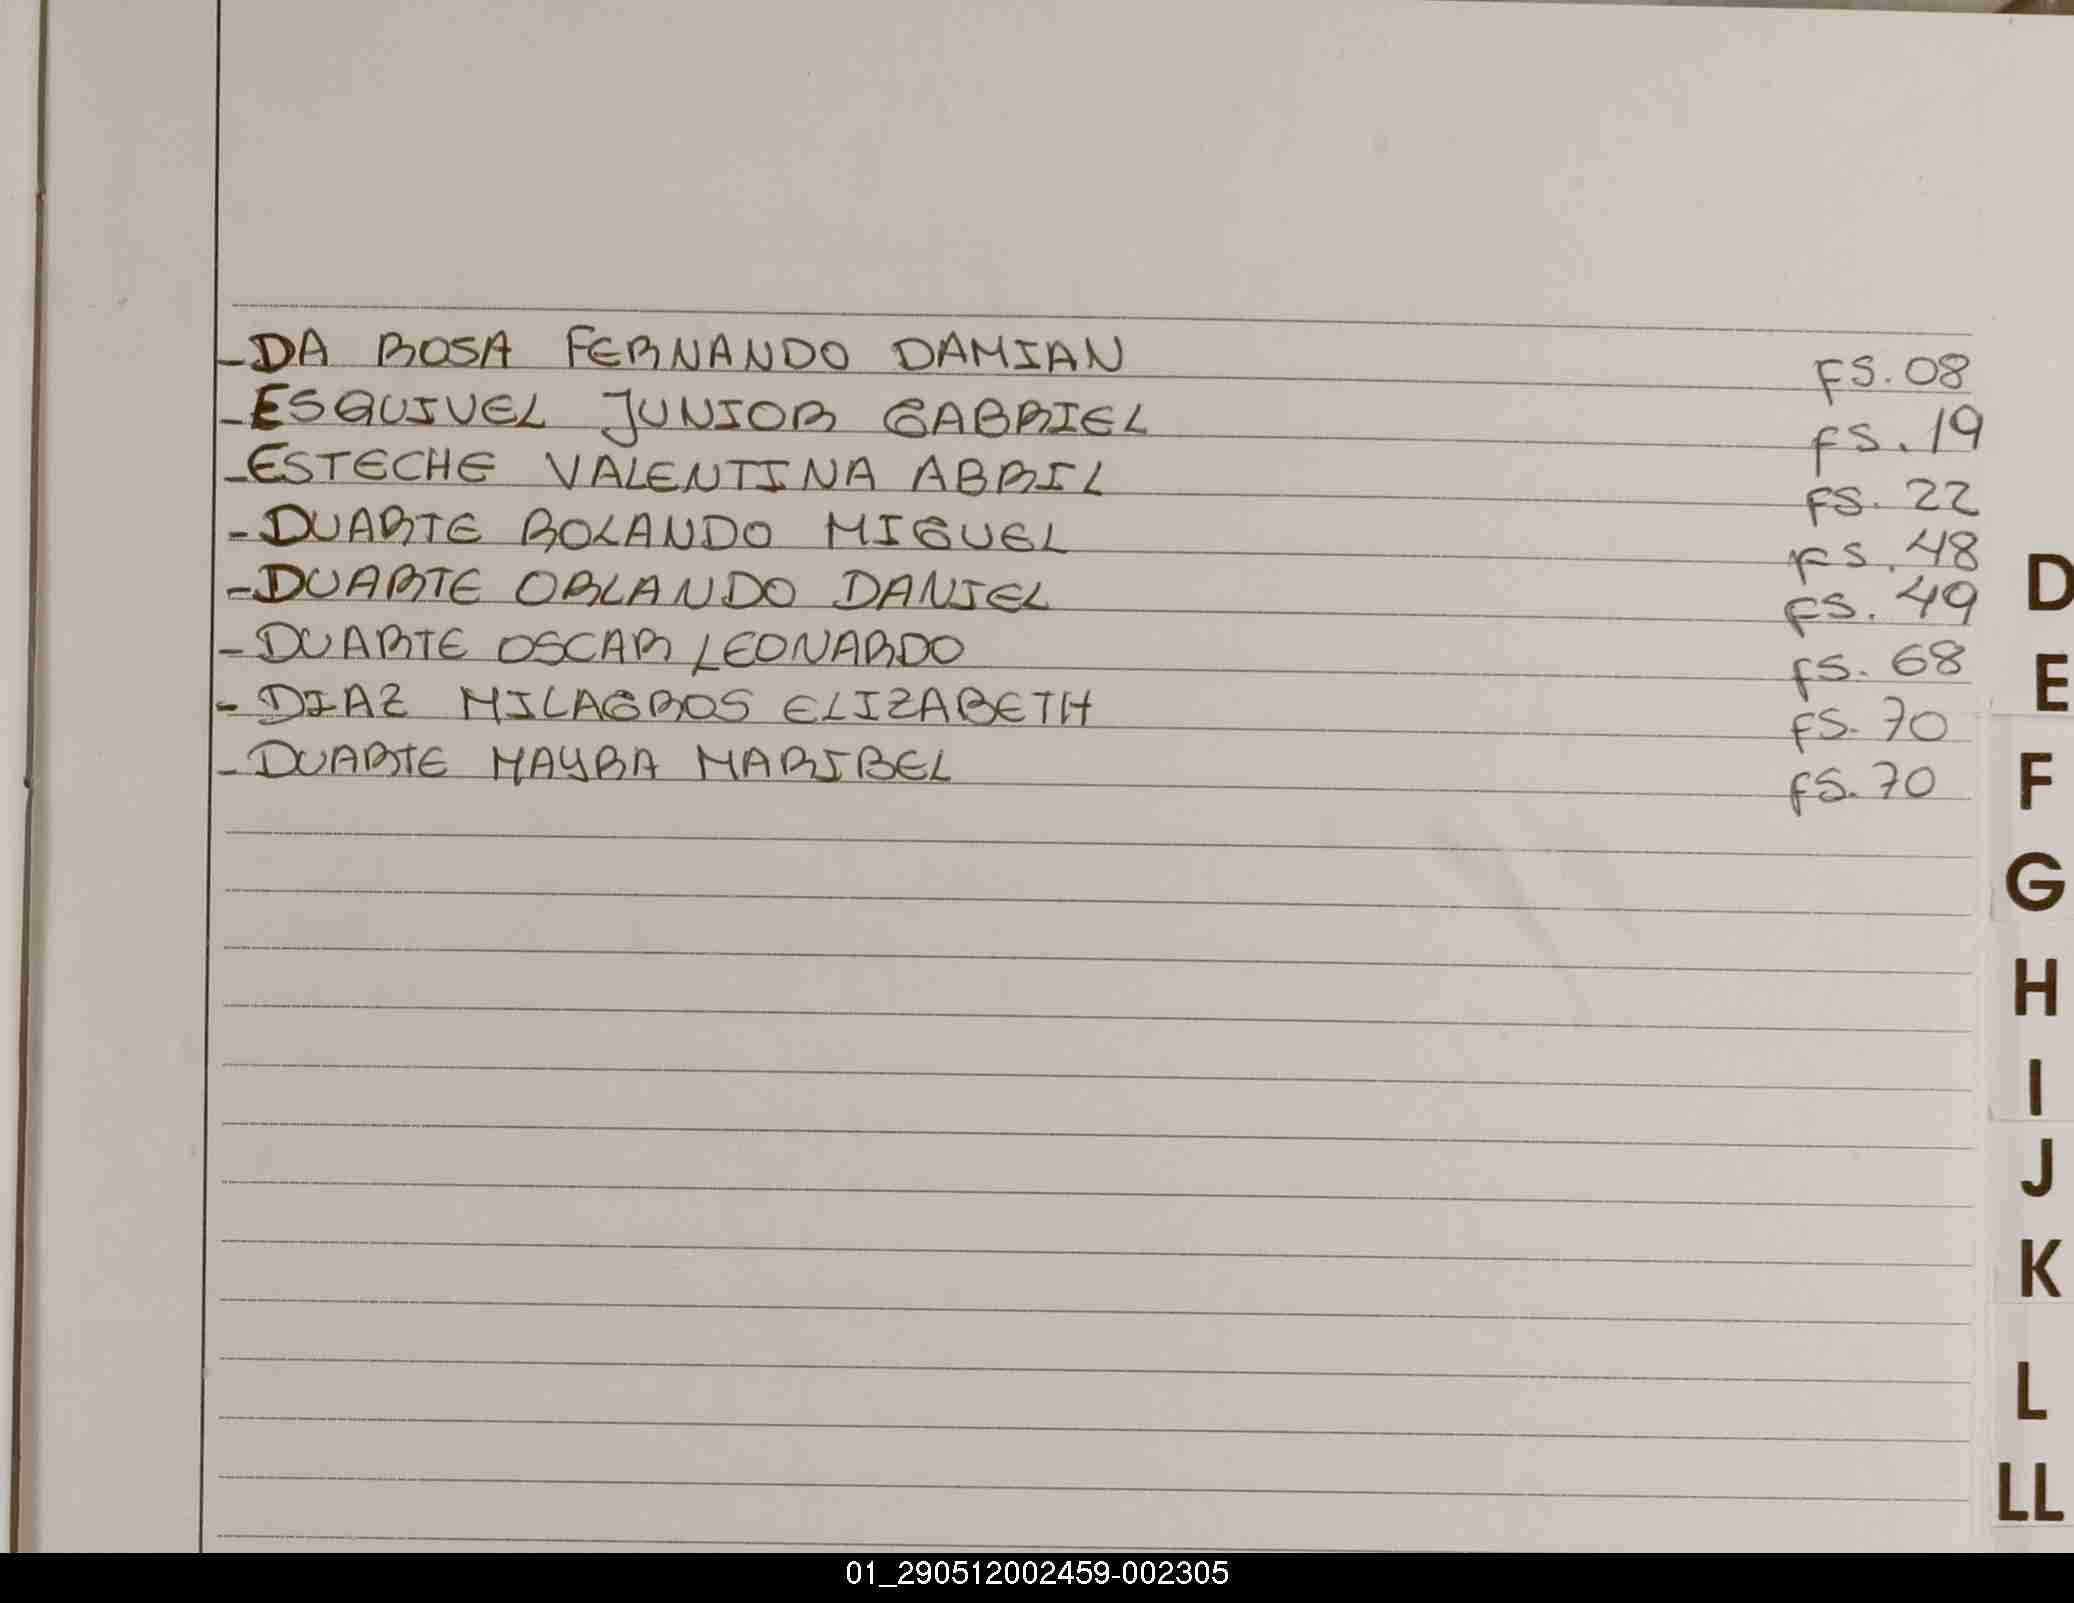 - DA ROSA FERNANDO DAMIAN FS. 08
- ESQUIVEL JUNIOR GABRIEL FS. 19
- ESTECHE VALENTINA ABRIL FS. 22
- DUARTE ROLANDO MIGUEL FS. 48
- DUARTE ORLANDO DANIEL FS. 49
- DUARTE OSCAR LEONARDO FS. 68
- DIAZ MILAGROS ELIZABETH FS. 70
- DUARTE MAYRA MARIBEL FS. 70
D
E
F
G
H
I
J
K
L
LL
01_290512002459-002305